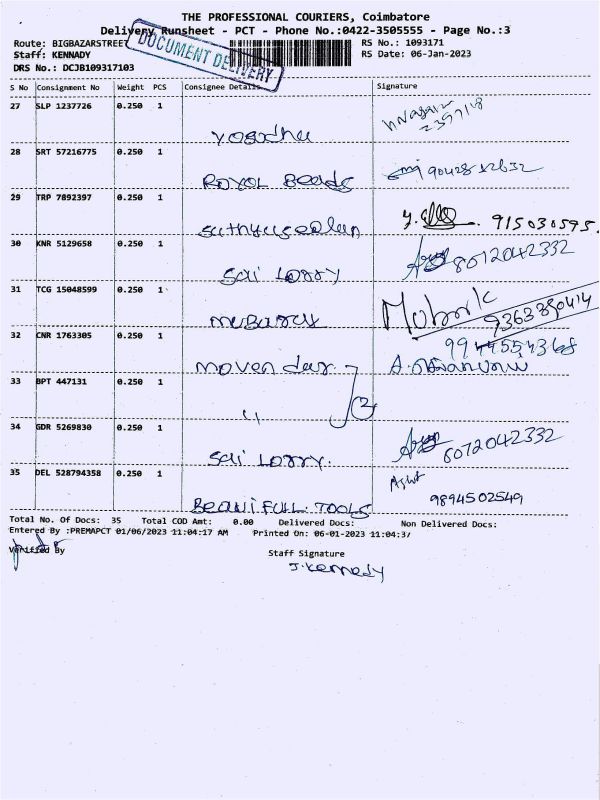 THE PROFESSIONAL COURIERS, Coimbatore
Delivery Runsheet - PCT - Phone No.:0422-3505555 - Page No.:3
Route: BIGBAZARSTREET
RS No.: 1093171
Staff: KENNADY
RS Date: 06-Jan-2023
DRS No.: DCJB109317103
DOCUMENT DELIVERY
S No Consignment No Weight PCS Consignee Details Signature
27 SLP 1237726 0.250 1
28 SRT 57216775 0.250 1 ROYOL Beads
29 TRP 7892397 0.250 1 915030595
30 KNR 5129658 0.250 1 Sai Lorry 8012042332
31 TCG 15048599 0.250 1 Mubarak 9363380414
32 CNR 1763305 0.250 1 Movendar
33 BPT 447131 0.250 1 ,,
34 GDR 5269830 0.250 1 Sai Lorry. 8072042332
35 DEL 528794358 0.250 1 Beauifull Tools 9894502549
Total No. Of Docs: 35 Total COD Amt: 0.00 Delivered Docs: Non Delivered Docs:
Entered By :PREMAPCT 01/06/2023 11:04:17 AM Printed On: 06-01-2023 11:04:37
Verified By
Staff Signature
J. Kennedy